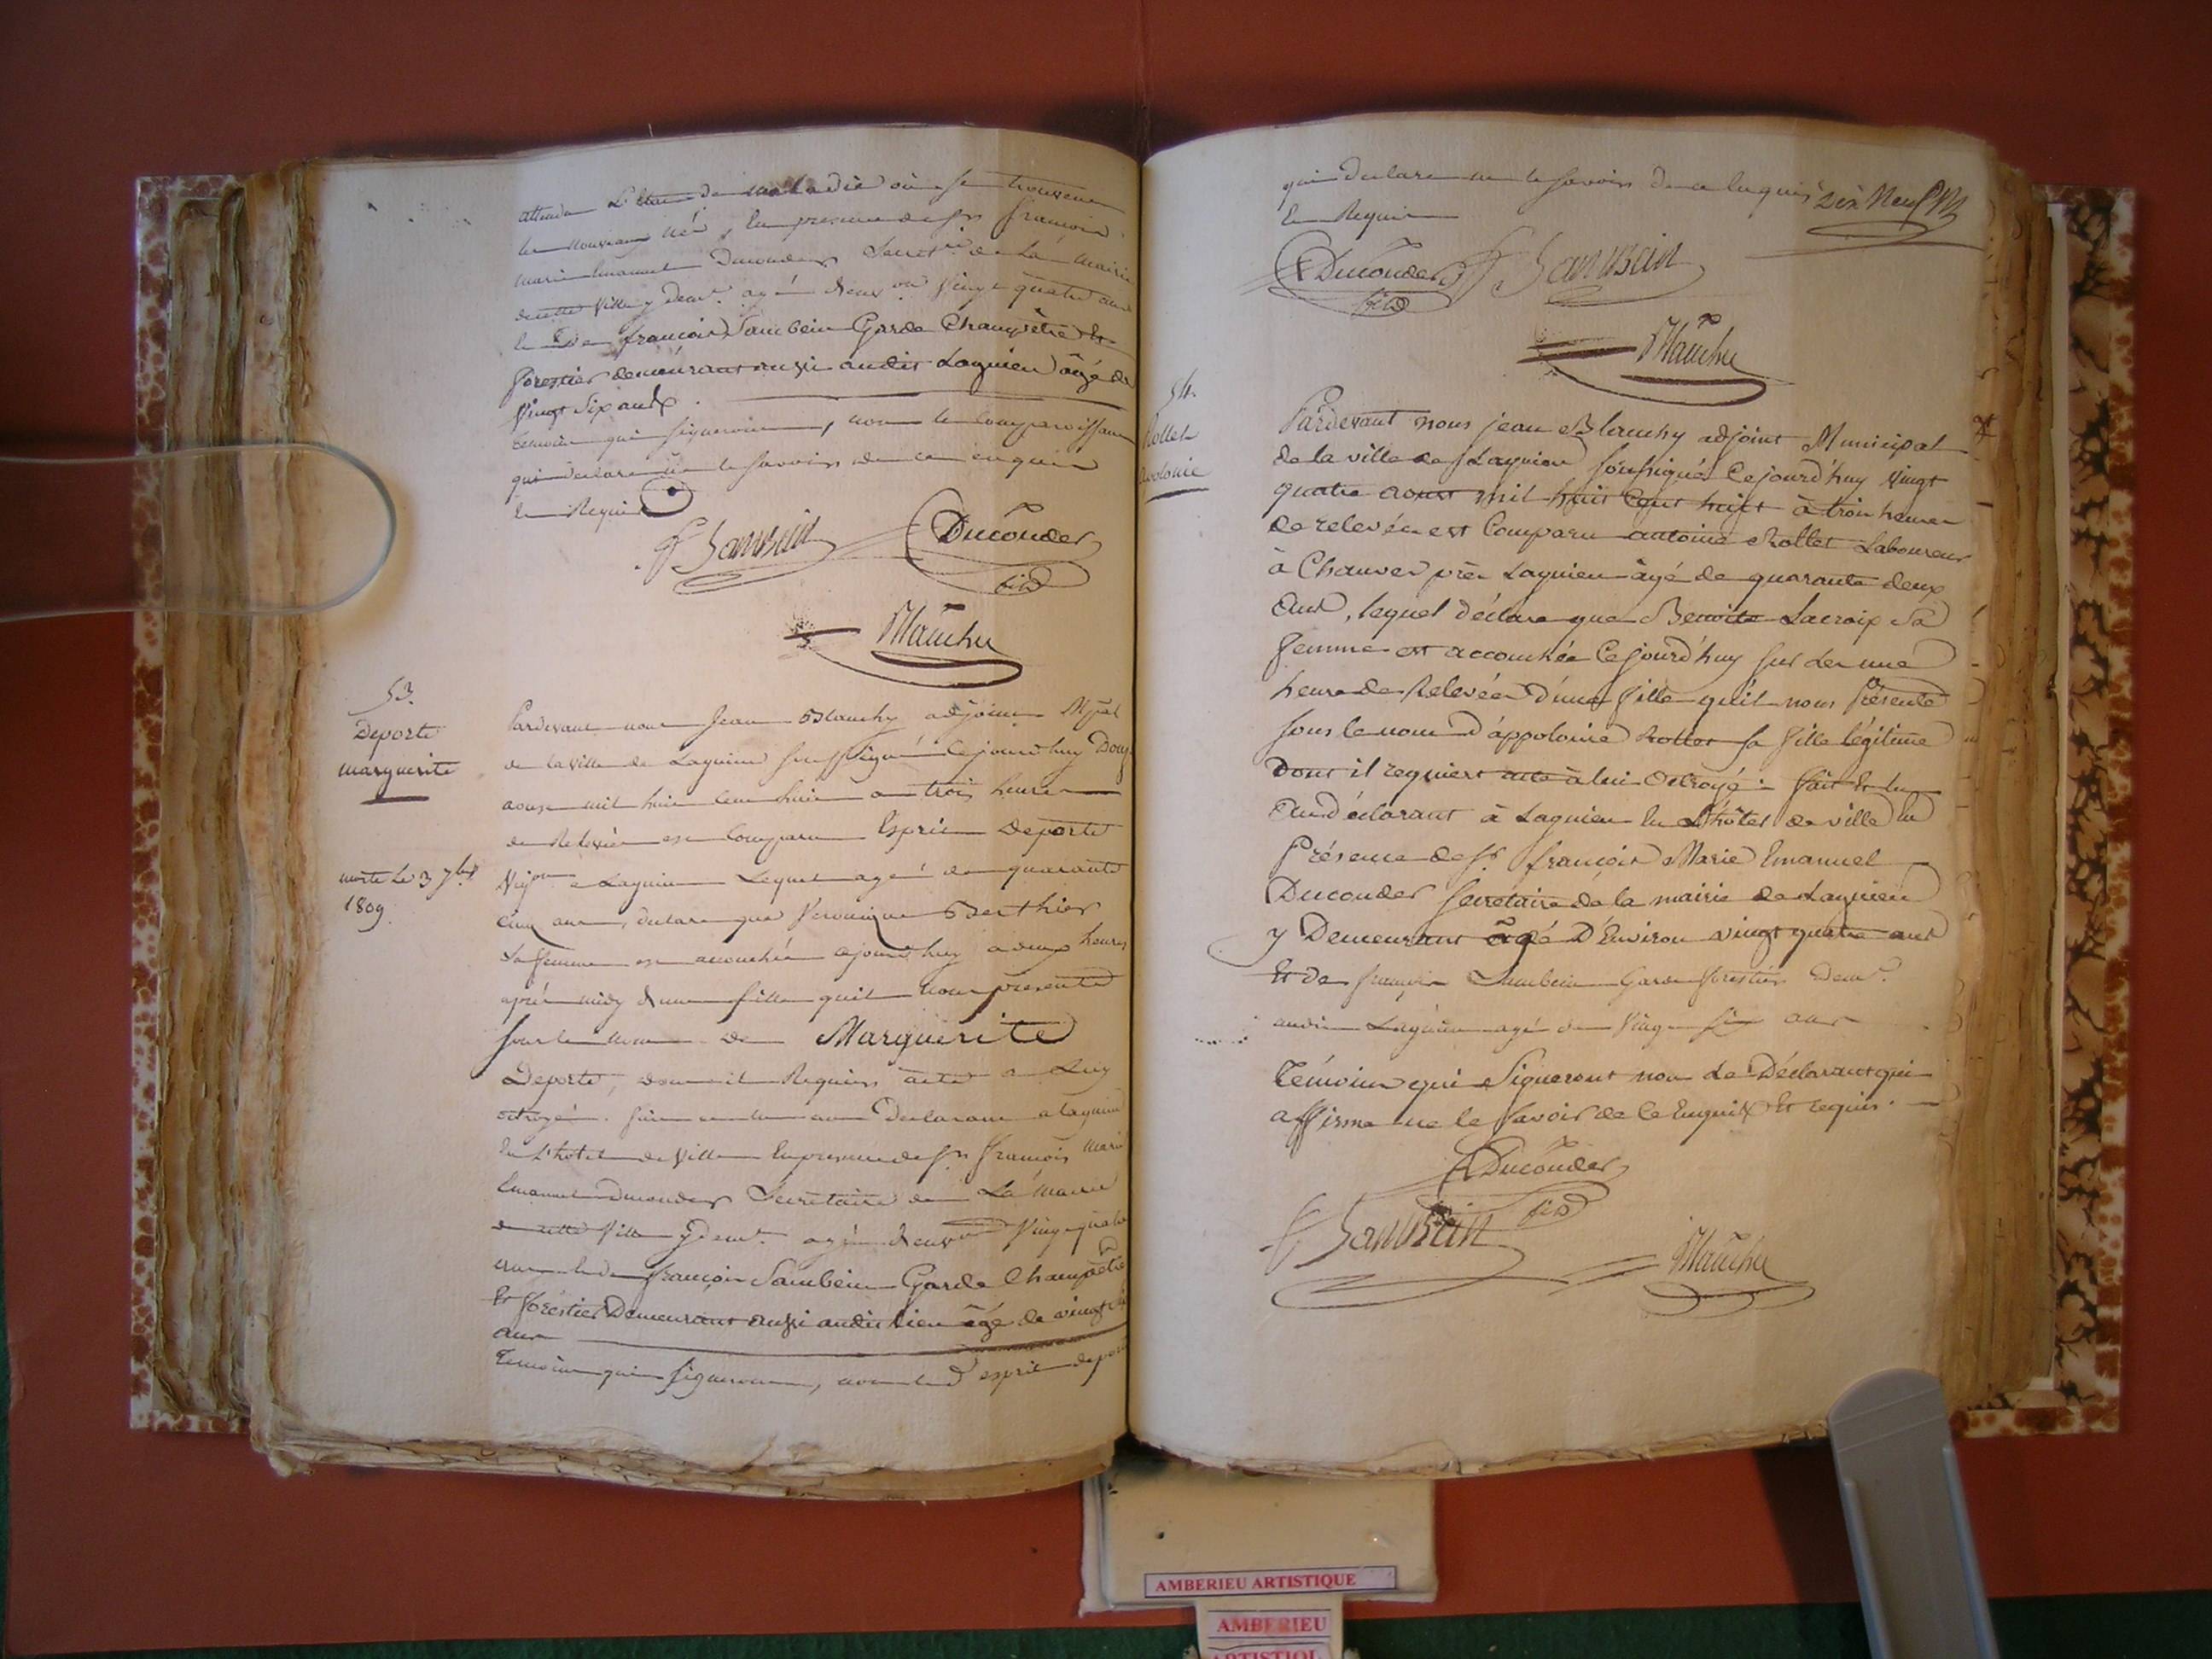 attendu L'état de maladie où se trouve
le nouveau né, En presence de Srs françois
marie Emanuel Ducouder Secretre de La mairie
de cette Ville y demt. agé d'environ Vingt quatre ans
françois Sambein Garde Champêtre et
forestier demeurant aussi audit Lagnieu âgé de
Vingt Six ans.
temoins qui signeront, non le comparoissant
qui declare ne le savoir de ce enquis
et Requis
F Sambein Ducouder
fils
Blanchy
53.
Deporte
marguerite
morte le 3 7bre
1809.
Pardevant nous Jean Blanchy adjoint Mpal
de la ville de Lagnieu soussigné Cejourd'huy Douze
aoust mil huit Cent huit a trois heures
de Relevée est Comparu Esprit Deporte
Vigon a Lagnieu Lequel agé de quarante
Cinq ans, declare que Veronique Berthier
Sa femme est accouchée ajourd'huy a deux heures
après midy d'une fille quil nous presente
sous le nom de Marguerite
Deporte, dont il Requiers acte a Luy
octroyé. fait et lu au Declarant a Lagnieu
En L'hotel de Ville En presence de Srs françois marie
Emanuel Ducouder Secretaire de La mairie
de cette Ville y demt. agé d'environ Vingt quatre
ans et de françois Sambein Garde Champêtre
Et forestier Demeurant aussi audit Lieu âgé de vingt six
ans
Temoins qui signeront, non led. esprit deporte
qui Declare ne le savoir de ce Enquis Dix Neuf
Et Requis
Ducouder F Sambein
fils
Blanchy
54.
Rollet
apolonie
Pardevant nous jean Blanchy adjoint Municipal
de la ville de Lagnieu soussigné Cejourd'huy Vingt
quatre aoust mil huit Cent huit à trois heures
de relevée est Comparu antoine Rollet Laboureur
à Chanver près Lagnieu âgé de quarante deux
Ans, lequel déclare que Benoite Lacroix Sa
femme est accouchée Cejourd'huy sur les une
heure de Relevée D'une fille qu'il nous Présente
sous le nom D'appolonie Rollet sa fille légitime
Dont il requiert acte à lui Octroyé. fait et lu
Au déclarant à Lagnieu En L'hôtel de ville En
Présence de Sr. françois Marie Emanuel
Ducouder secrétaire de la mairie de Lagnieu
y Demeurant âgé D'Environ vingt quatre ans
Et de françois Sambein Garde forestier Demt.
audit Lagnieu agé de Vingt Six ans
Témoins qui Signeront non Le Déclarant qui
affirme ne le savoir de Ce Enquis Et requis.
Ducouder
fils
F Sambein Blanchy
AMBERIEU ARTISTIQUE
AMBERIEU